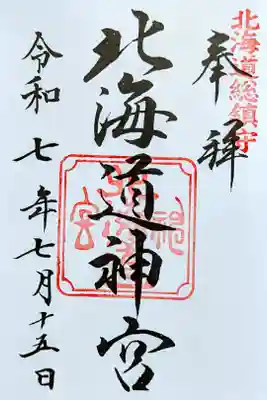 北海道総鎮守
奉拝
北海道神宮
令和七年七月十五日